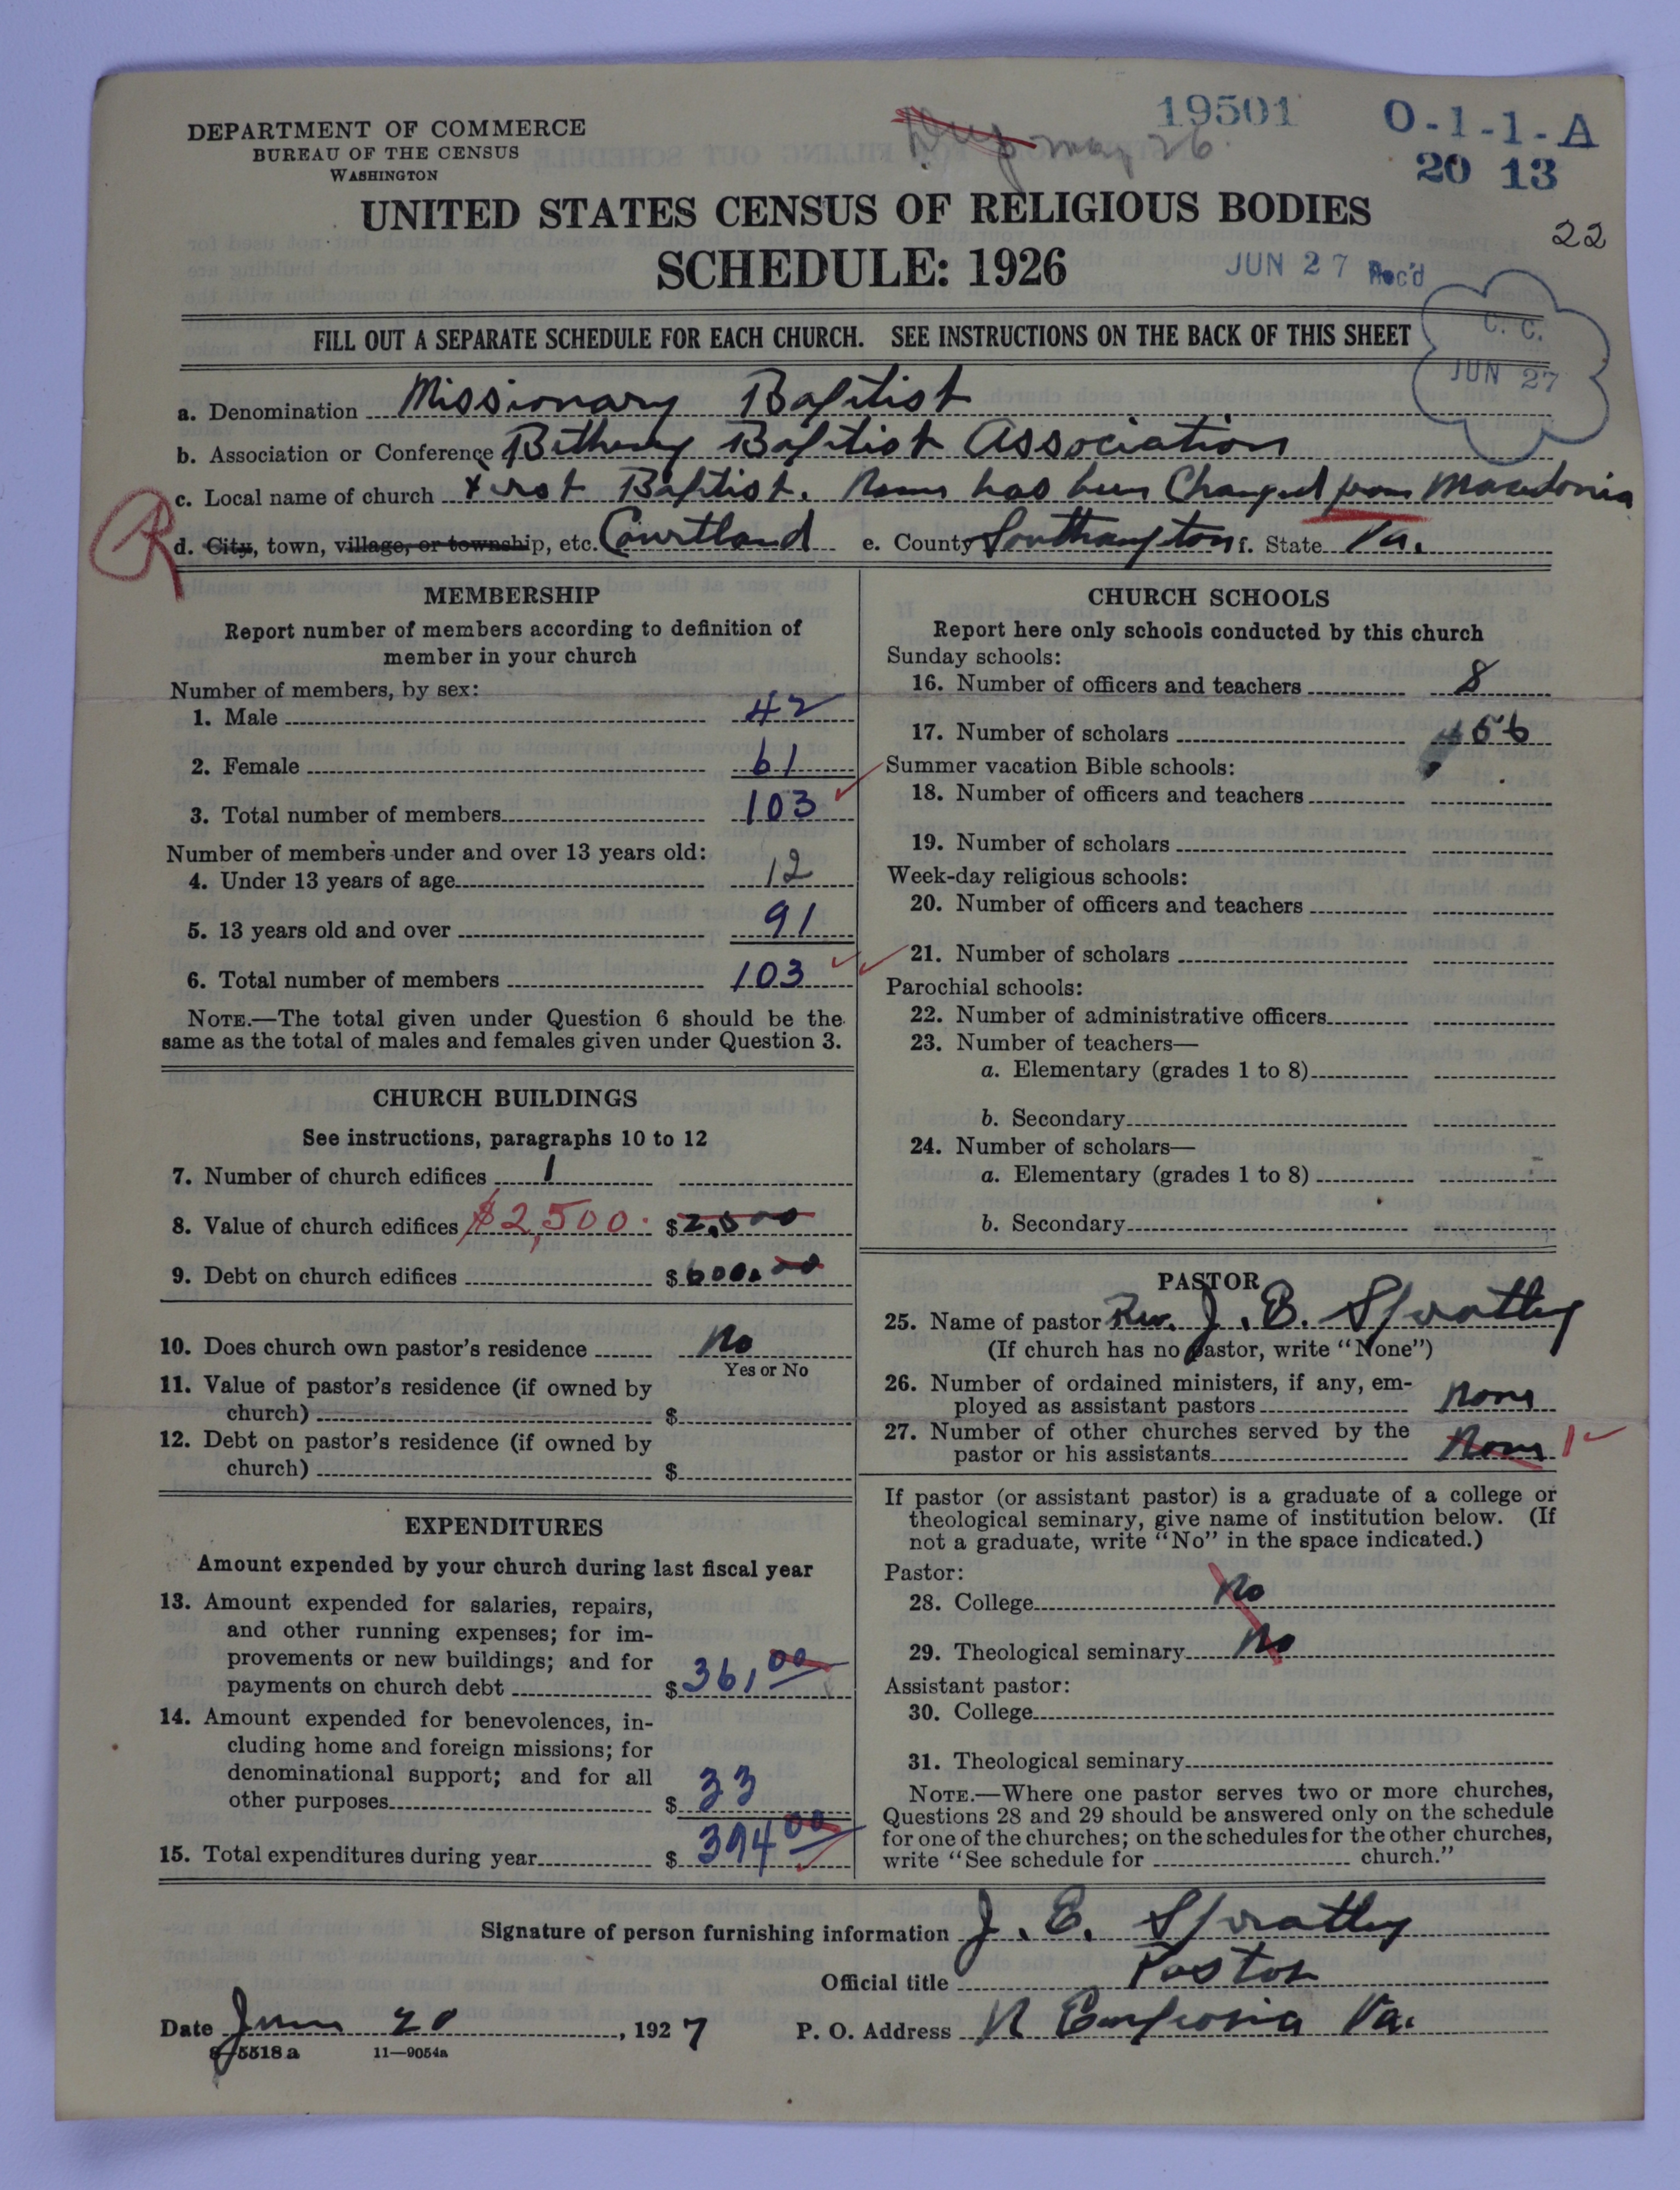 DEPARTMENT OF COMMERCE
BUREAU OF THE CENSUS
WASHINGTON
19501
O-1-1-A
20 13
May 26
22
UNITED STATES CENSUS OF RELIGIOUS BODIES
SCHEDULE: 1926
JUN 27 Rec'd
C. C.
JUN 27
FILL OUT A SEPARATE SCHEDULE FOR EACH CHURCH. SEE INSTRUCTIONS ON THE BACK OF THIS SHEET
a. Denomination Missionary Baptist
b. Association or Conference Bethany Baptist Association
c. Local name of church First Baptist. Name has been Changed from Macedonia
R
d. City, town, village, or township, etc. Courtland e. County Southampton f. State Va.
MEMBERSHIP
Report number of members according to definition of
member in your church
Number of members, by sex:
1. Male 42
2. Female 61
3. Total number of members 103
Number of members under and over 13 years old:
4. Under 13 years of age 12
5. 13 years old and over 91
6. Total number of members 103
NOTE.—The total given under Question 6 should be the
same as the total of males and females given under Question 3.
CHURCH BUILDINGS
See instructions, paragraphs 10 to 12
7. Number of church edifices 1
8. Value of church edifices $2,500. $2,500
9. Debt on church edifices $600.00
10. Does church own pastor's residence No
Yes or No
11. Value of pastor's residence (if owned by
church) $
12. Debt on pastor's residence (if owned by
church) $
EXPENDITURES
Amount expended by your church during last fiscal year
13. Amount expended for salaries, repairs,
and other running expenses; for im-
provements or new buildings; and for
payments on church debt $361,00
14. Amount expended for benevolences, in-
cluding home and foreign missions; for
denominational support; and for all
other purposes $33
15. Total expenditures during year $394 00
CHURCH SCHOOLS
Report here only schools conducted by this church
Sunday schools:
16. Number of officers and teachers 8
17. Number of scholars 56
Summer vacation Bible schools:
18. Number of officers and teachers
19. Number of scholars
Week-day religious schools:
20. Number of officers and teachers
21. Number of scholars
Parochial schools:
22. Number of administrative officers
23. Number of teachers—
a. Elementary (grades 1 to 8)
b. Secondary
24. Number of scholars—
a. Elementary (grades 1 to 8)
b. Secondary
PASTOR
25. Name of pastor Rev. J. E. Spratley
(If church has no pastor, write "None")
26. Number of ordained ministers, if any, em-
ployed as assistant pastors None
27. Number of other churches served by the
pastor or his assistants None 1
If pastor (or assistant pastor) is a graduate of a college or
theological seminary, give name of institution below. (If
not a graduate, write "No" in the space indicated.)
Pastor:
28. College No
29. Theological seminary No
Assistant pastor:
30. College
31. Theological seminary
NOTE.—Where one pastor serves two or more churches,
Questions 28 and 29 should be answered only on the schedule
for one of the churches; on the schedules for the other churches,
write "See schedule for church."
Signature of person furnishing information J. E. Spratley
Official title Pastor
Date June 20, 1927 P. O. Address N Emporia Va.
8-5518a 11—9054a